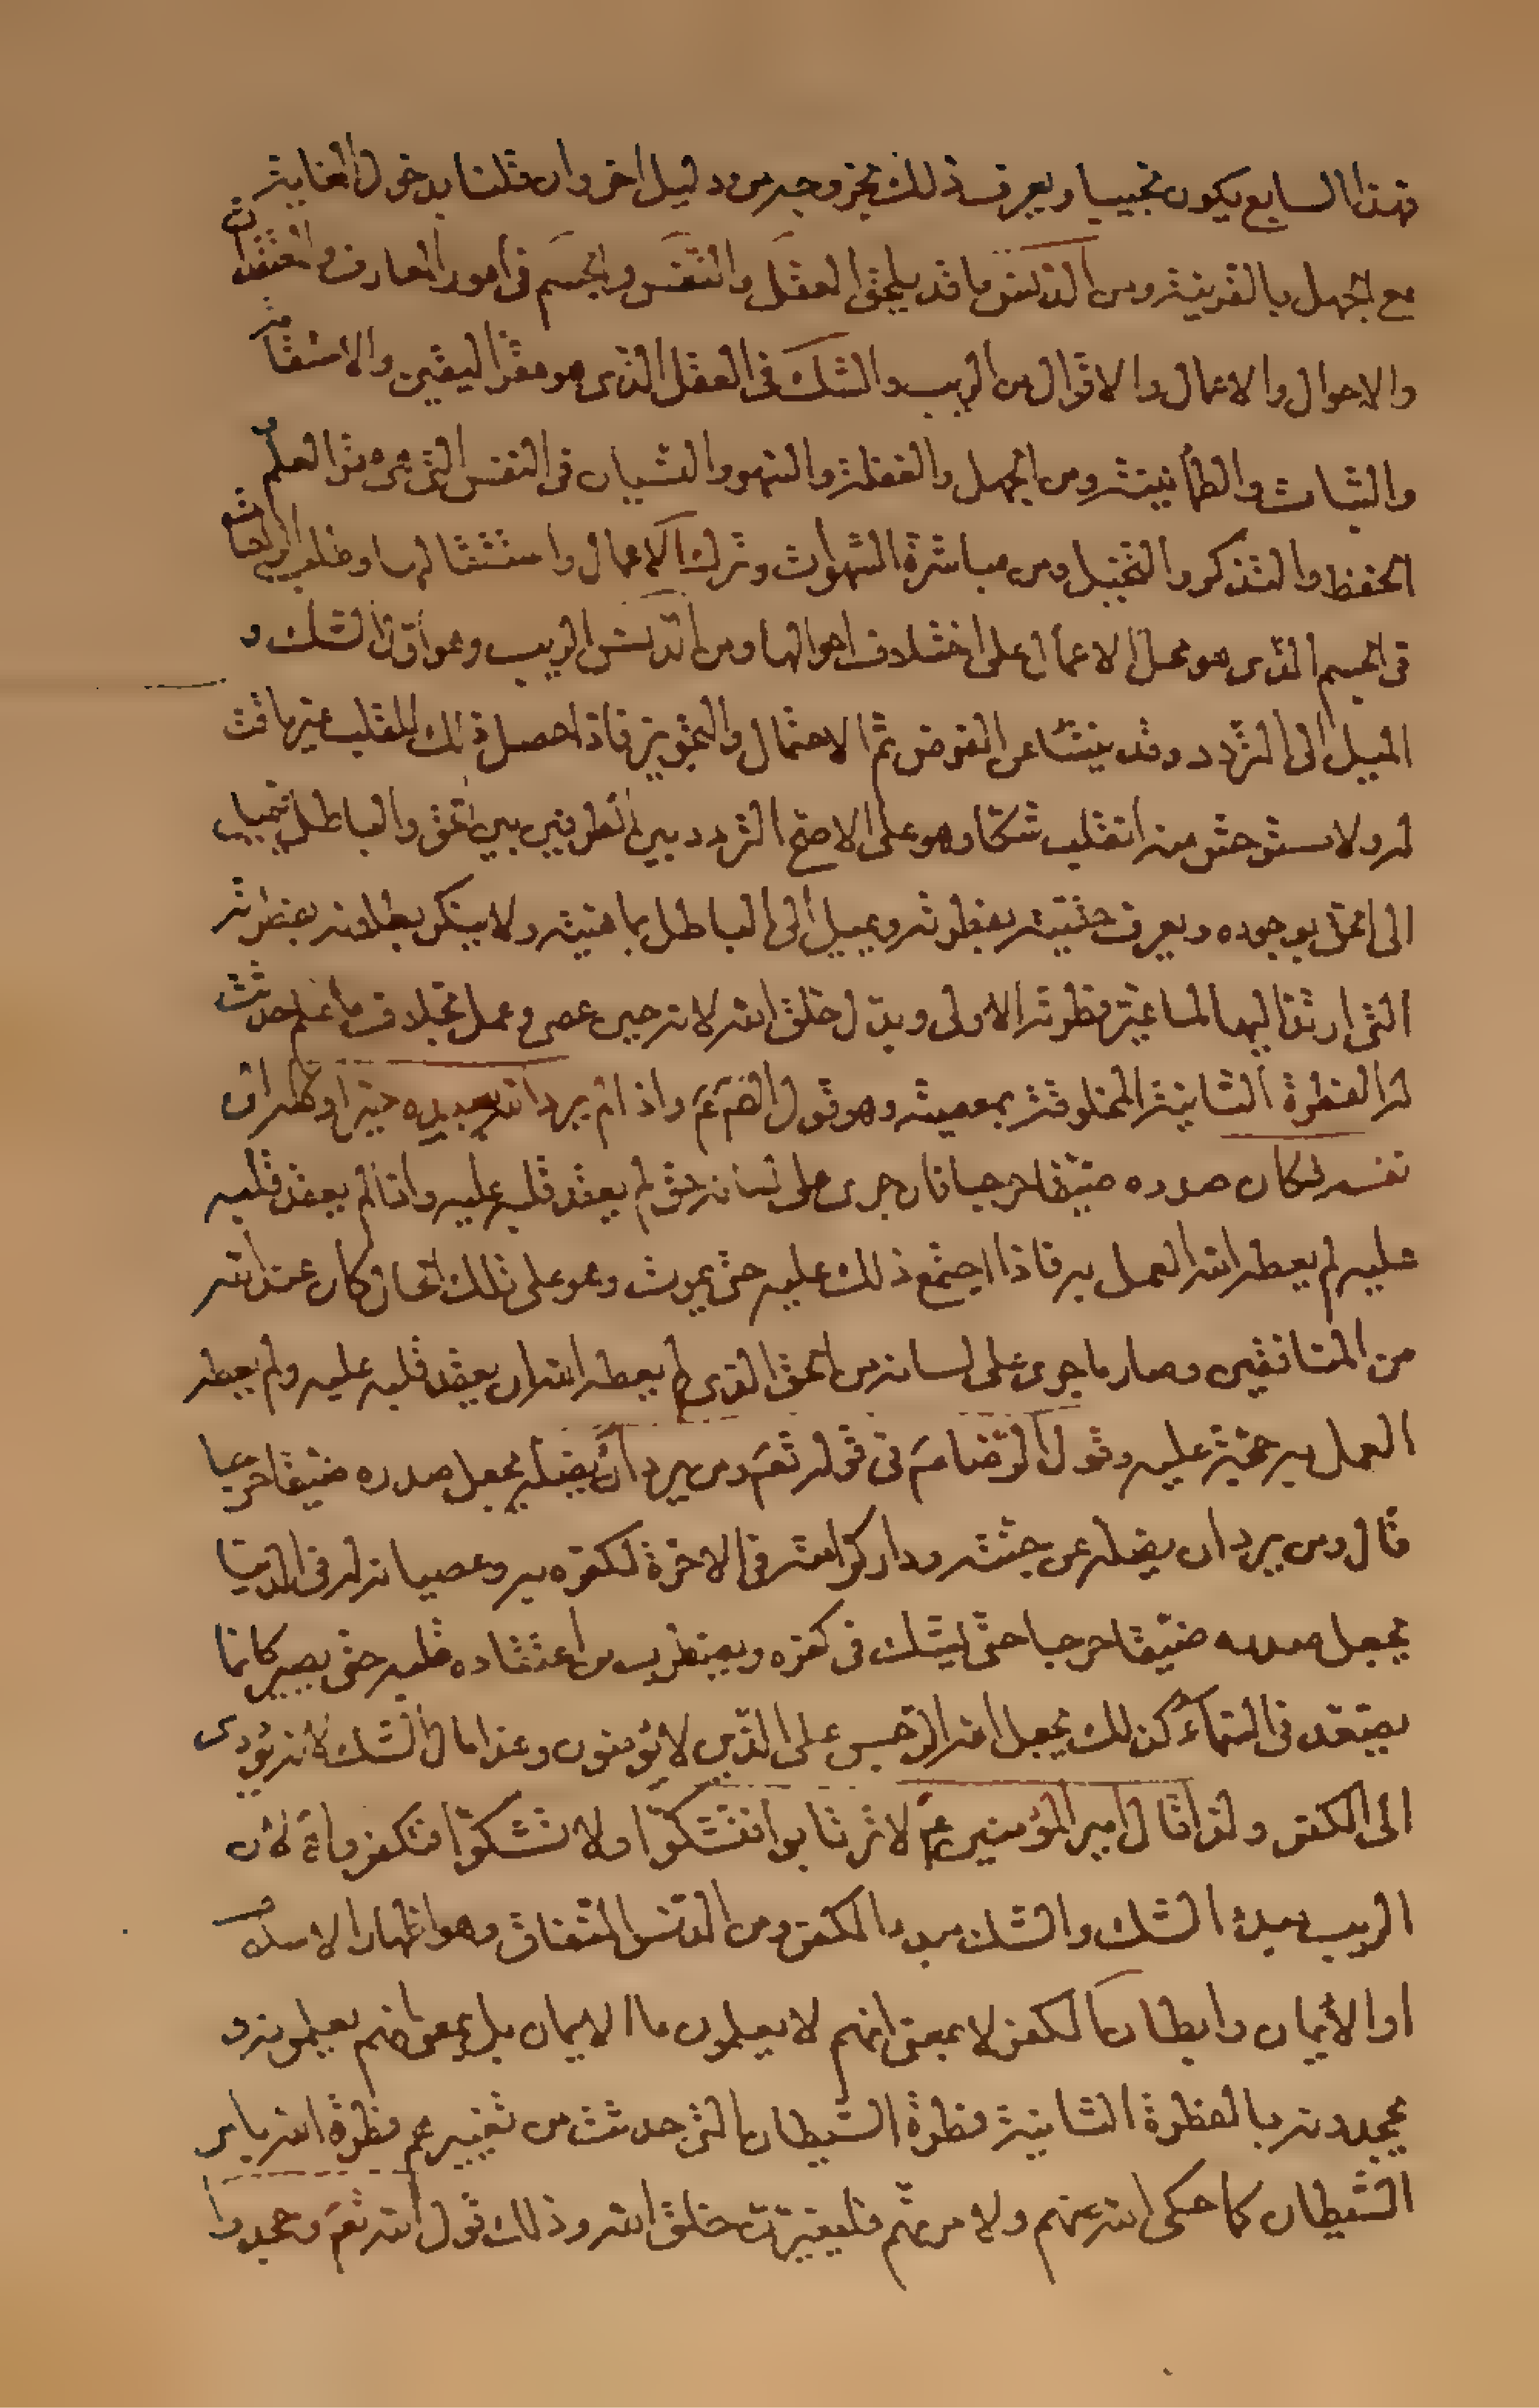 فهذا السابع يكون مجيبا ويعرف ذلك بخروجه من دليل اخر وان قلنا بدخول الغاية
مع الجهل بالقرينة ومن الدنس ما قد يلحق العقل والنفس والجسم فى امور المعارف والمعتقدات
والاحوال والاعمال والاقوال من الريب والشك فى العقل الذى هو مقر اليقين والاستقامة
والثبات والطمأنينة ومن الجهل والغفلة والسهو والنسيان فى النفس التى هى مقر العلم و
الحفظ والتذكر والتخيل ومن مباشرة الشهوات وترك الاعمال واستثقالها وفعل
فى الجسم الذى هو محل الاعمال على اختلاف احوالها ومن الدنس الريب وهو اوّل الشك و
الميل الى التردد وقد ينشا عن الفرض ثم الاحتمال والتجويز فاذا حصل ذلك للقلب
له ولا ستوحش منه انقلب شكّا وهو على الاصح التردد بين الطرفين بين الحق والباطل يميل
الى الحق بوجوده ويعرف حقيته بفطرته ويميل الى الباطل بماهيته ولا ينكر بطلانه بفطرته
التى ارتد اليها لما غيّر فطرته الاولى وبدّل خلق الله لانه حين عصى وعمل بخلاف ما علم حدثت
له الفطرة الثانية المخلوقة بمعصيته وهو قول الصم عم واذا لم يرد الله بعبده خيرا وكله الى
نفسه فكان صدره ضيّقا حرجا فان جرى على لسانه حق لم يعقد قلبه عليه واذا لم يعقد قلبه
عليه لم يعطه الله العمل به فاذا اجتمع ذلك عليه حتى يموت وهو على تلك الحال كان عند الله
من المنافقين وصار ما جرى على لسانه من الحق الذى لم يعطه الله ان يعقد قلبه عليه ولم يعطه
العمل به حجّة عليه وقول الرّضا عم فى قوله تعم ومن يرد ان يضلّه يجعل صدره ضيّقا حرجا
قال ومن يرد ان يضله عن جنّته ودار كرامته فى الاخرة لكفره به وعصيانه له فى الدنيا
يجعل صدره ضيّقا حرجا حتى يشك فى كفره ويضطرب من اعتقاده قلبه حتى يصير كانما
يصّعّد فى السّماء كذلك يجعل الله الرّجس على الذين لا يؤمنون وهذا مال الشك لانه يؤدى
الى الكفر ولذا قال امير المؤمنين عم لا ترتابوا فتشكّوا ولا تشكّوا فتكفروا لان
الريب مبدء الشك والشك مبدء الكفر ومن الدنس النفاق وهو اظهار الاسلام
او الايمان وابطان الكفر لا بمعنى انهم لا يعلمون ما الايمان بل بمعنى انهم يعلمونه و
يجحدونه بالفطرة الثانية فطرة الشيطان التى حدثت من تغييرهم فطرة الله بامر
الشيطان كما حكى الله عنهم ولامرنّهم فليغيّرن خلق الله وذلك قول الله تعم وجحدوا